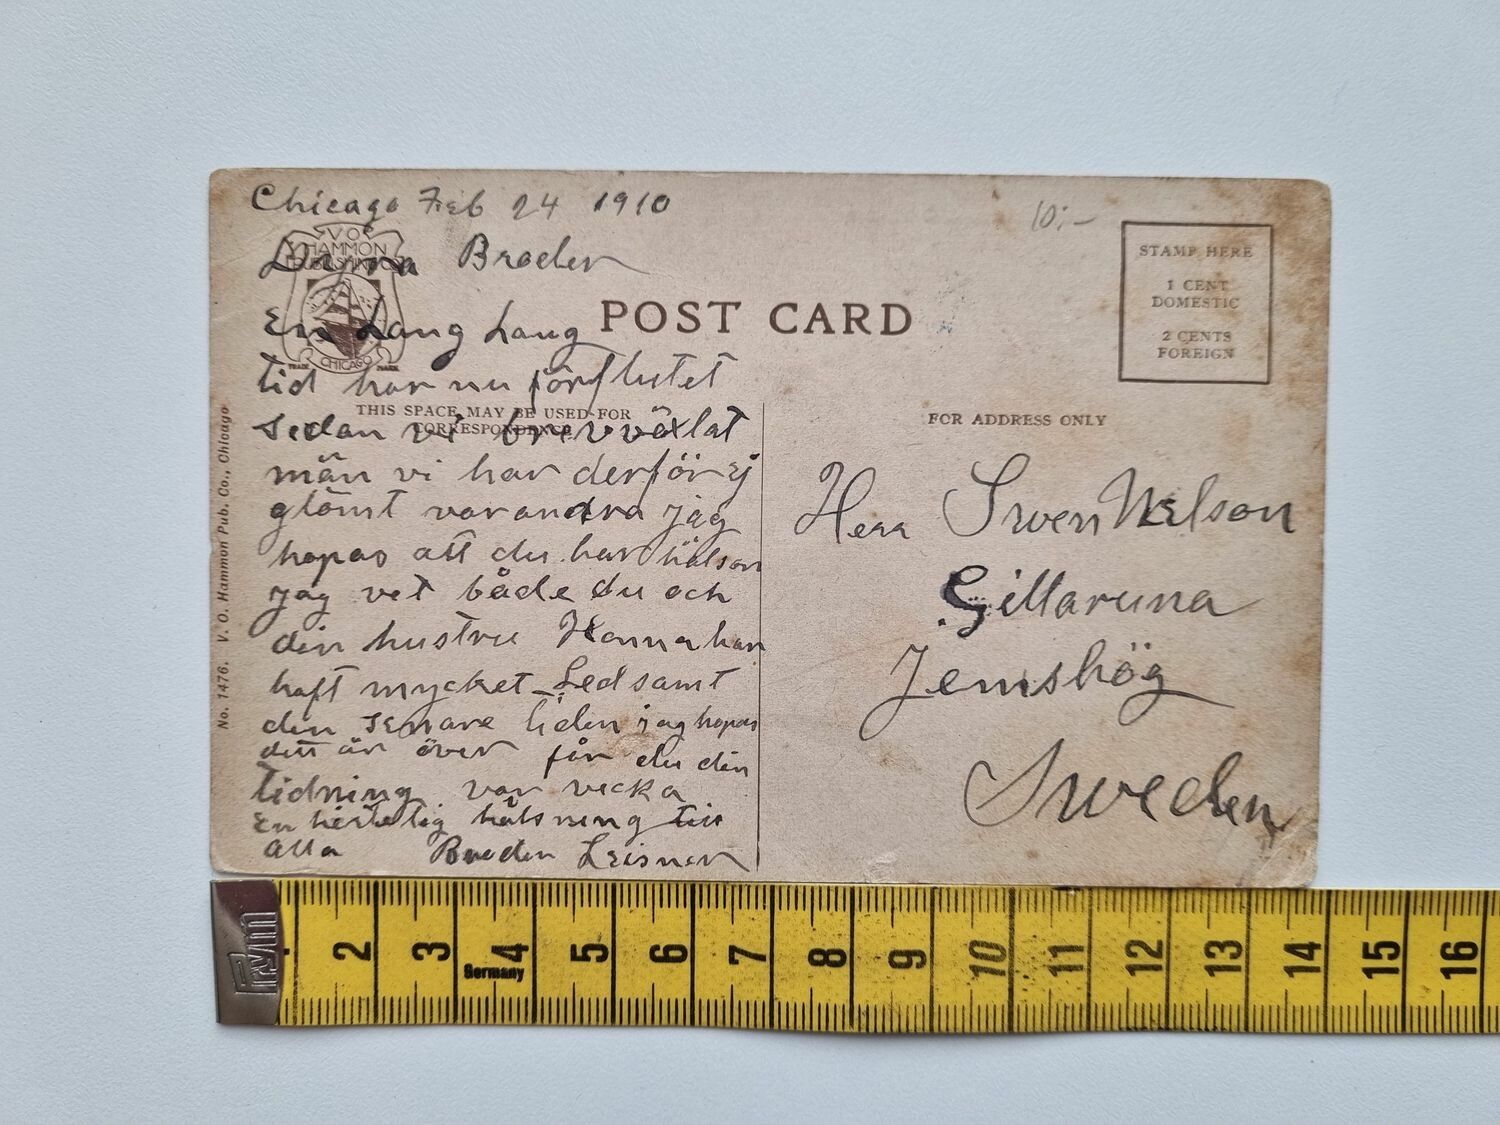 Chicago Feb 24 1910
Dyra Broder
En Lang Lang
tid har nu förflutet
sedan vi brevväxlat
män vi har derför ej
glömt varandra jag
hopas att du har hälson
jag vet både du och
din hustru Hanna har
haft mycket Ledsamt
den senare tiden jag hopas
dett är över får du din
tidning var vecka
En hertelig hälsning till
alla Broder Leisner
V.O.
HAMMON
PUBLISHING CO.
CHICAGO
TRADE MARK
POST CARD
THIS SPACE MAY BE USED FOR
CORRESPONDENCE
No. 1476. V. O. Hammon Pub. Co., Chicago
10:-
STAMP HERE
1 CENT
DOMESTIC
2 CENTS
FOREIGN
FOR ADDRESS ONLY
Herr Swen Nilson
Gillaruna
Jemshög
Sweden
Prym
2 3 4 5 6 7 8 9 10 11 12 13 14 15 16
Germany